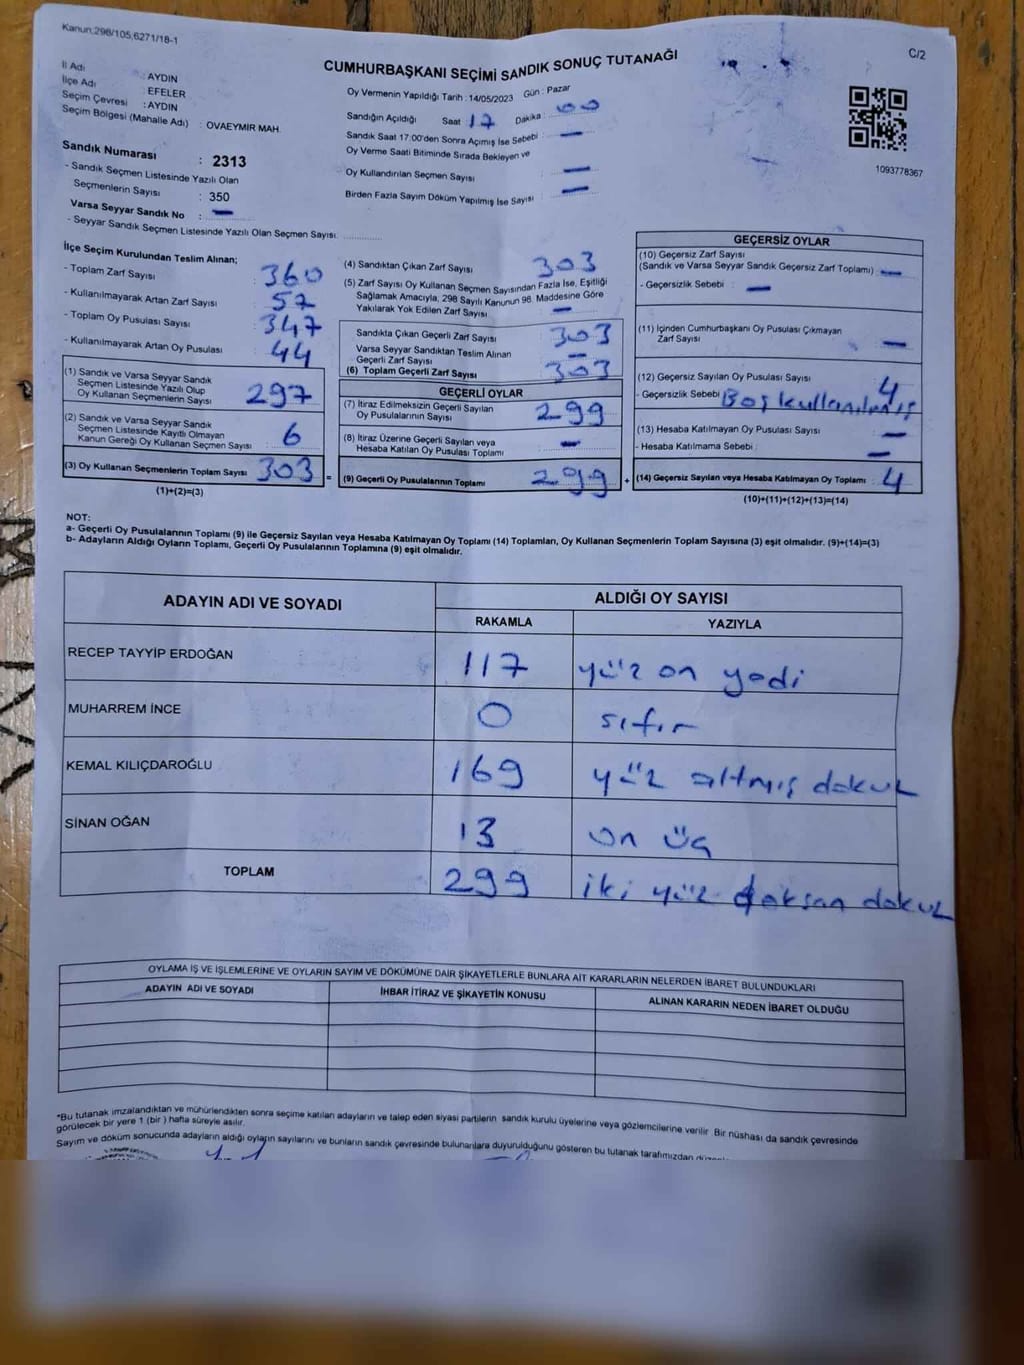 Kanun:298/105,6271/18-1
C/2
CUMHURBAŞKANI SEÇİMİ SANDIK SONUÇ TUTANAĞI
İl Adı : AYDIN
İlçe Adı : EFELER
Seçim Çevresi : AYDIN
Seçim Bölgesi (Mahalle Adı) : OVAEYMİR MAH.
Oy Vermenin Yapıldığı Tarih : 14/05/2023 Gün : Pazar
Sandığın Açıldığı Saat 17 Dakika : 00
Sandık Saat 17:00'den Sonra Açımış İse Sebebi : —
Oy Verme Saati Bitiminde Sırada Bekleyen ve
Oy Kullandırılan Seçmen Sayısı —
Birden Fazla Sayım Döküm Yapılmış İse Sayısı : —
1093778367
Sandık Numarası : 2313
- Sandık Seçmen Listesinde Yazılı Olan
Seçmenlerin Sayısı : 350
Varsa Seyyar Sandık No : —
- Seyyar Sandık Seçmen Listesinde Yazılı Olan Seçmen Sayısı:
İlçe Seçim Kurulundan Teslim Alınan;
- Toplam Zarf Sayısı : 360
- Kullanılmayarak Artan Zarf Sayısı : 57
- Toplam Oy Pusulası Sayısı : 347
- Kullanılmayarak Artan Oy Pusulası : 44
(1) Sandık ve Varsa Seyyar Sandık
Seçmen Listesinde Yazılı Olup
Oy Kullanan Seçmenlerin Sayısı : 297
(2) Sandık ve Varsa Seyyar Sandık
Seçmen Listesinde Kayıtlı Olmayan
Kanun Gereği Oy Kullanan Seçmen Sayısı : 6
(3) Oy Kullanan Seçmenlerin Toplam Sayısı : 303 =
(1)+(2)=(3)
(4) Sandıktan Çıkan Zarf Sayısı : 303
(5) Zarf Sayısı Oy Kullanan Seçmen Sayısından Fazla İse, Eşitliği
Sağlamak Amacıyla, 298 Sayılı Kanunun 98. Maddesine Göre
Yakılarak Yok Edilen Zarf Sayısı : —
Sandıkta Çıkan Geçerli Zarf Sayısı : 303
Varsa Seyyar Sandıktan Teslim Alınan
Geçerli Zarf Sayısı : —
(6) Toplam Geçerli Zarf Sayısı : 303
GEÇERLİ OYLAR
(7) İtiraz Edilmeksizin Geçerli Sayılan
Oy Pusulalarının Sayısı : 299
(8) İtiraz Üzerine Geçerli Sayılan veya
Hesaba Katılan Oy Pusulası Toplamı : —
(9) Geçerli Oy Pusulalarının Toplamı : 299 +
GEÇERSİZ OYLAR
(10) Geçersiz Zarf Sayısı
(Sandık ve Varsa Seyyar Sandık Geçersiz Zarf Toplamı) : —
- Geçersizlik Sebebi : —
(11) İçinden Cumhurbaşkanı Oy Pusulası Çıkmayan
Zarf Sayısı : —
(12) Geçersiz Sayılan Oy Pusulası Sayısı : 4
- Geçersizlik Sebebi Boş kullanılmış
(13) Hesaba Katılmayan Oy Pusulası Sayısı : —
- Hesaba Katılmama Sebebi : —
(14) Geçersiz Sayılan veya Hesaba Katılmayan Oy Toplamı : 4
(10)+(11)+(12)+(13)=(14)
NOT:
a- Geçerli Oy Pusulalarının Toplamı (9) ile Geçersiz Sayılan veya Hesaba Katılmayan Oy Toplamı (14) Toplamları, Oy Kullanan Seçmenlerin Toplam Sayısına (3) eşit olmalıdır. (9)+(14)=(3)
b- Adayların Aldığı Oyların Toplamı, Geçerli Oy Pusulalarının Toplamına (9) eşit olmalıdır.
ADAYIN ADI VE SOYADI ALDIĞI OY SAYISI
RAKAMLA YAZIYLA
RECEP TAYYİP ERDOĞAN 117 yüz on yedi
MUHARREM İNCE 0 sıfır
KEMAL KILIÇDAROĞLU 169 yüz altmış dokuz
SİNAN OĞAN 13 on üç
TOPLAM 299 iki yüz doksan dokuz
OYLAMA İŞ VE İŞLEMLERİNE VE OYLARIN SAYIM VE DÖKÜMÜNE DAİR ŞİKAYETLERLE BUNLARA AİT KARARLARIN NELERDEN İBARET BULUNDUKLARI
ADAYIN ADI VE SOYADI İHBAR İTİRAZ VE ŞİKAYETİN KONUSU ALINAN KARARIN NEDEN İBARET OLDUĞU
*Bu tutanak imzalandıktan ve mühürlendikten sonra seçime katılan adayların ve talep eden siyasi partilerin sandık kurulu üyelerine veya gözlemcilerine verilir. Bir nüshası da sandık çevresinde
görülecek bir yere 1 (bir ) hafta süreyle asılır.
Sayım ve döküm sonucunda adayların aldığı oyların sayılarını ve bunların sandık çevresinde bulunanlara duyurulduğunu gösteren bu tutanak tarafımızdan